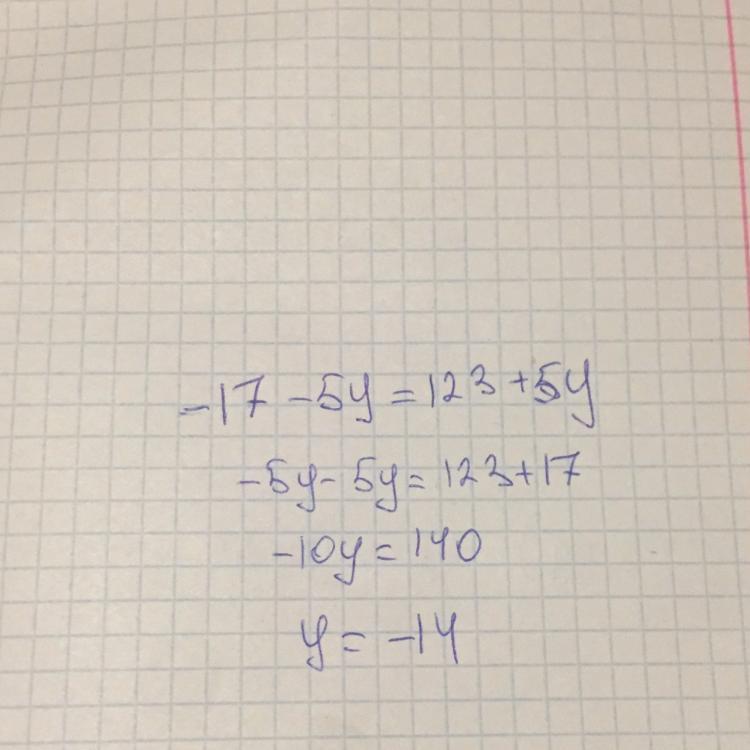 -17 -5y = 123 +5y
-5y - 5y = 123+17
-10y = 140
y = -14